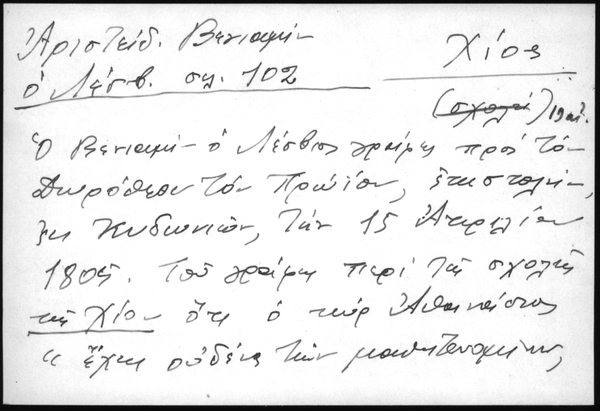 Ἀριστείδ. Βενιαμὶν
ὁ Λέσβ. σελ. 102
Χίος
(σχολαί) 19 αἰ.
Ὁ Βενιαμὶν ὁ Λέσβιος γράφει πρὸς τὸν
Δωρόθεον τὸν Πρώϊον, ἐπιστολὴν,
ἐκ Κυδωνιῶν, τὴν 15 Ἀπριλίου
1805. Τοῦ γράφει περὶ τῆς σχολῆς
τῆς Χίου ὅτι ὁ κὺρ Ἀθανάσιος
"ἔχει οὐδένα τῶν μαθητευομένων,